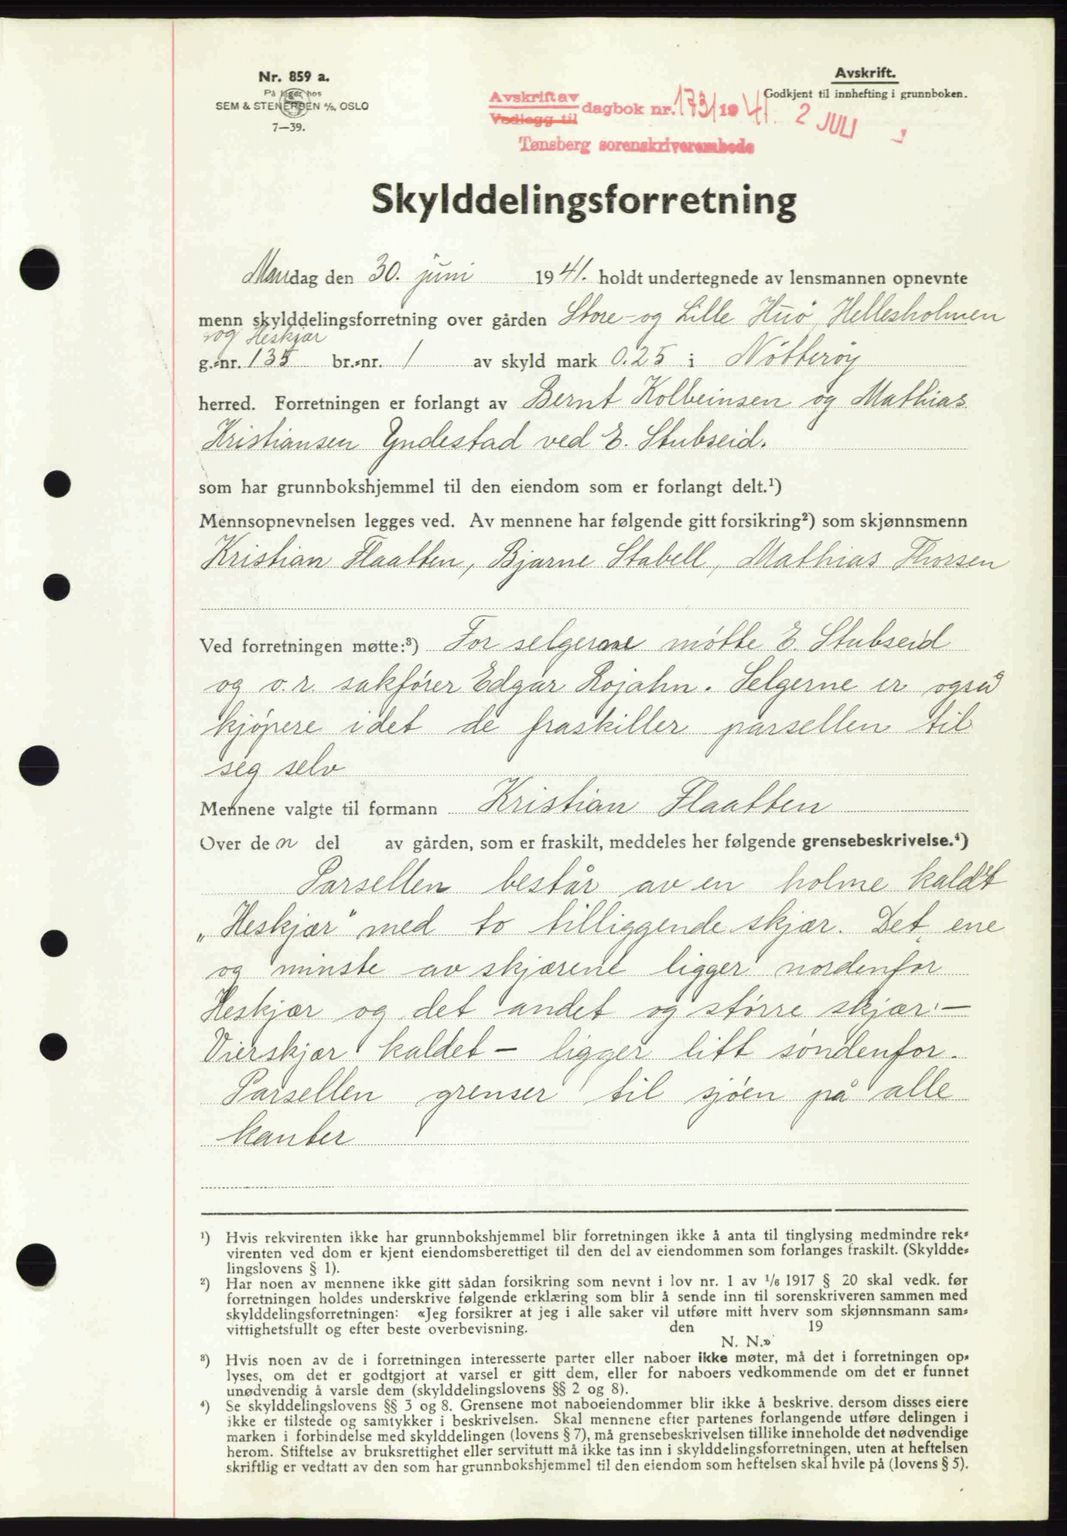 Nr. 859 a.
På lager hos
SEM & STENERSEN A/S, OSLO
7—39.
Avskrift av
Vedlegg til
dagbok nr. 1731 1941. 2 JULI
Tønsberg sorenskriverembede
Avskrift.
Godkjent til innhefting i grunnboken.
Skylddelingsforretning
Mandag den 30. juni 1941. holdt undertegnede av lensmannen opnevnte
menn skylddelingsforretning over gården Store- og Lille Huö, Hellesholmen
og Heskjær
g.-nr. 135 br.-nr. 1 av skyld mark 0.25 i Nötteröy
herred. Forretningen er forlangt av Bernt Kolbeinsen og Mathias
Kristiansen Yndestad ved E. Stubseid.
som har grunnbokshjemmel til den eiendom som er forlangt delt.¹)
Mennsopnevnelsen legges ved. Av mennene har følgende gitt forsikring²) som skjønnsmenn
Kristian Flaatten, Bjarne Stabell, Mathias Thorsen
Ved forretningen møtte:³) For selgerne mötte E. Stubseid
og o.r. sakförer Edgar Rojahn. Selgerne er også
kjöpere idet de fraskiller parsellen til
seg selv
Mennene valgte til formann Kristian Flaatten
Over den del av gården, som er fraskilt, meddeles her følgende grensebeskrivelse.⁴)
Parsellen består av en holme kaldt
„Heskjær" med to tilliggende skjær. Det ene
og minste av skjærene ligger nordenfor
Heskjær og det andet og större skjær -
Vierskjær kaldet - ligger litt söndenfor.
Parsellen grenser til sjöen på alle
kanter
¹) Hvis rekvirenten ikke har grunnbokshjemmel blir forretningen ikke å anta til tinglysing medmindre rek-
virenten ved dom er kjent eiendomsberettiget til den del av eiendommen som forlanges fraskilt. (Skyldde-
lingslovens § 1).
²) Har noen av mennene ikke gitt sådan forsikring som nevnt i lov nr. 1 av 1/6 1917 § 20 skal vedk. før
forretningen holdes underskrive følgende erklæring som blir å sende inn til sorenskriveren sammen med
skylddelingsforretningen: «Jeg forsikrer at jeg i alle saker vil utføre mitt hverv som skjønnsmann sam-
vittighetsfullt og efter beste overbevisning. den 19
N. N.»
³) Hvis noen av de i forretningen interesserte parter eller naboer ikke møter, må det i forretningen op-
lyses, om det er godtgjort at varsel er gitt dem, eller for naboers vedkommende om det er funnet
unødvendig å varsle dem (skylddelingslovens §§ 2 og 8).
⁴) Se skylddelingslovens §§ 3 og 8. Grensene mot naboeiendommer blir ikke å beskrive. dersom disses eiere
ikke er tilstede og samtykker i beskrivelsen. Skal mennene efter partenes forlangende utføre delingen i
marken i forbindelse med skylddelingen (lovens § 7), må grensebeskrivelsen tillike inneholde det nødvendige
herom. Stiftelse av bruksrettighet eller servitutt må ikke tas inn i skylddelingsforretningen, uten at heftelsen
skriftlig er vedtatt av den som har grunnbokshjemmel til den eiendom som heftelsen skal hvile på (lovens § 5).